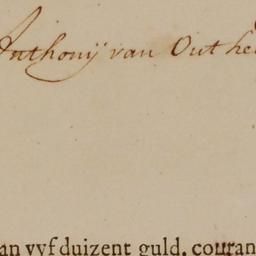 Anthonij van Out he
an vyf duizent guld, couran